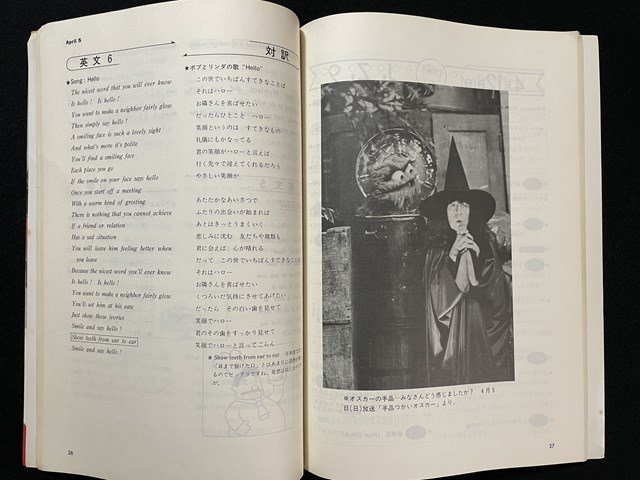 April 5
英文6
★Song: Hello
The nicest word that you will ever know
Is hello! Is hello!
You want to make a neighbor fairly glow
Then simply say hello!
A smiling face is such a lovely sight
And what's more it's polite
You'll find a smiling face
Each place you go
If the smile on your face says hello
Once you start off a meeting
With a warm kind of greeting
There is nothing that you cannot achieve
If a friend or relation
Has a sad situation
You will leave him feeling better when
you leave
Because the nicest word you'll ever know
Is hello! Is hello!
You want to make a neighbor fairly glow
You'll set him at his ease
Just show those ivories
Smile and say hello!
Show teeth from ear to ear
Smile and say hello!
26
対訳
★ボブとリンダの歌 "Hello"
この世でいちばんすてきなことば
それはハロー
お隣さんを喜ばせたい
だったらひとこと ハロー
笑顔というのは すてきなもの
礼儀にもかなってる
君の笑顔がハローと言えば
行く先々で迎えてくれるだろう
やさしい笑顔が
あたたかなあいさつで
ふたりの出会いが始まれば
あとはきっとうまくいく
悲しみに沈む 友だちや親類も
君に会えば 心が晴れる
だって この世でいちばんすてきなことば
それはハロー
お隣さんを喜ばせたい
くつろいだ気持にさせてあげたい
だったら その白い歯を見せて
笑顔でハロー
君のその歯をすっかり見せて
笑顔でハローと言ってごらん
※Show teeth from ear to ear
※オスカーの手品―みなさんどう感じましたか? 4月5
日(日)放送「手品つかいオスカー」より。
27